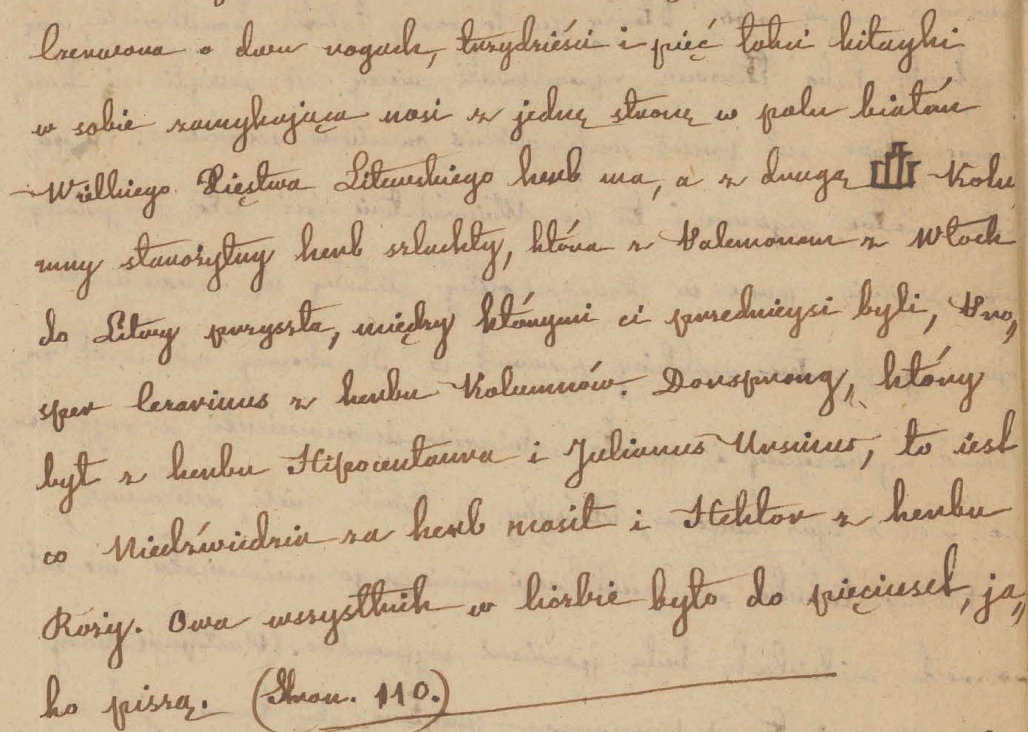 czerwona o dwu rogach, trzydzieści i pięć łokci kitayki
w sobie zamykająca nosi z jednę stronę w polu białém
Wielkiego Xięstwa Litewskiego herb ma, a z drugą Kolu
mny starożytny herb szlachty, która z Palemonem z Włoch
do Litwy przyszła, między którymi ci przednieysi byli, Pro„
sper Cezarinus z herbu Kolumnów. Dorsprong, który
był z herbu Hipocentaura i Julianus Ursinus, to iest
co Niedźwiedzia za herb nosił i Hektor z herbu
Roży. Owa wszystkich w liczbie było do pięciuset, ja„
ko piszą. (Stron. 110.)